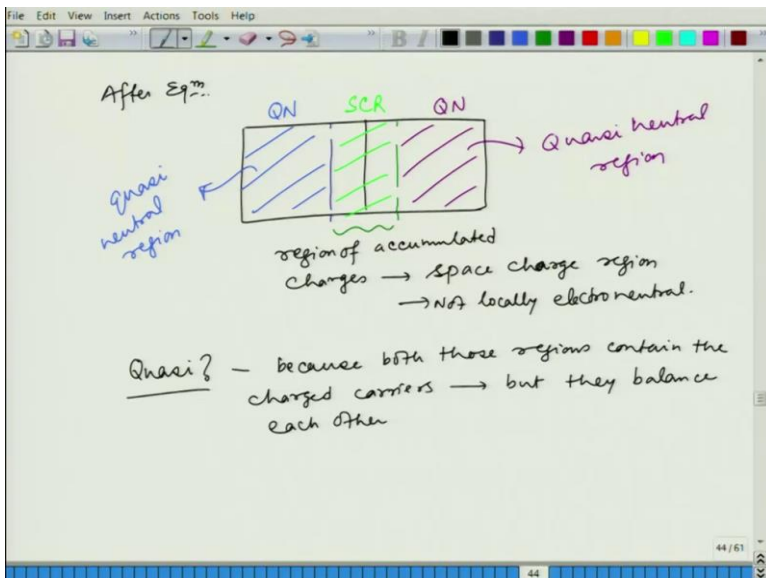 File Edit View Insert Actions Tools Help
B I
After Eqm.
QN SCR QN
Quasi neutral
region
quasi
neutral
region
region of accumulated
charges → space charge region
→ Not locally electroneutral.
Quasi? – because both those regions contain the
charged carriers → but they balance
each other
44/61
44